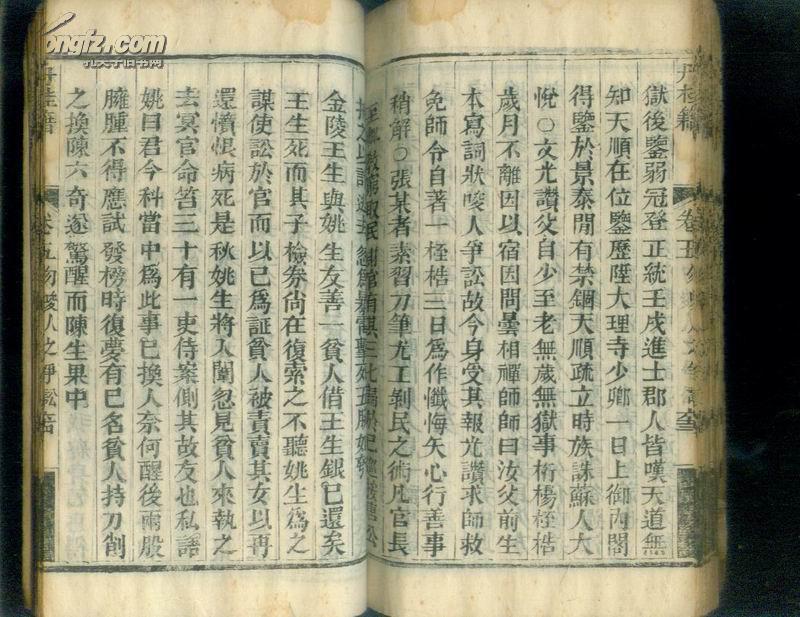 獄後鑒弱冠登正統壬戌進士郡人皆嘆天道無
知天順在位鑒歷陞大理寺少卿一日上御內閣
得鑒於景泰間有禁錮天順疏立時族誅蘇人大
悅○文光讚父自少至老無歲無獄事桁楊桎梏
歲月不離因以宿因問曇相禪師師曰汝父前生
本寫詞狀唆人爭訟故今身受其報光讚求師救
免師令自著一桎梏三日爲作懺悔矢心行善事
稍解○張某者素習刀筆尤工剝民之術凡官長
金陵王生與姚生友善一貧人借王生銀已還矣
王生死而其子檢券尙在復索之不聽姚生爲之
謀使訟於官而以已爲証貧人被責賣其女以再
還憤恨病死是秋姚生將入闈忽見貧人來執之
去冥官命笞三十有一吏侍案側其故友也私語
姚曰君今科當中爲此事已換人奈何醒後兩股
臃腫不得應試發榜時復夢有已名貧人持刀削
之換陳六奇遂驚醒而陳生果中
丹桂籍
卷五勿唆人之爭訟
kongfz.com
孔夫子旧书网